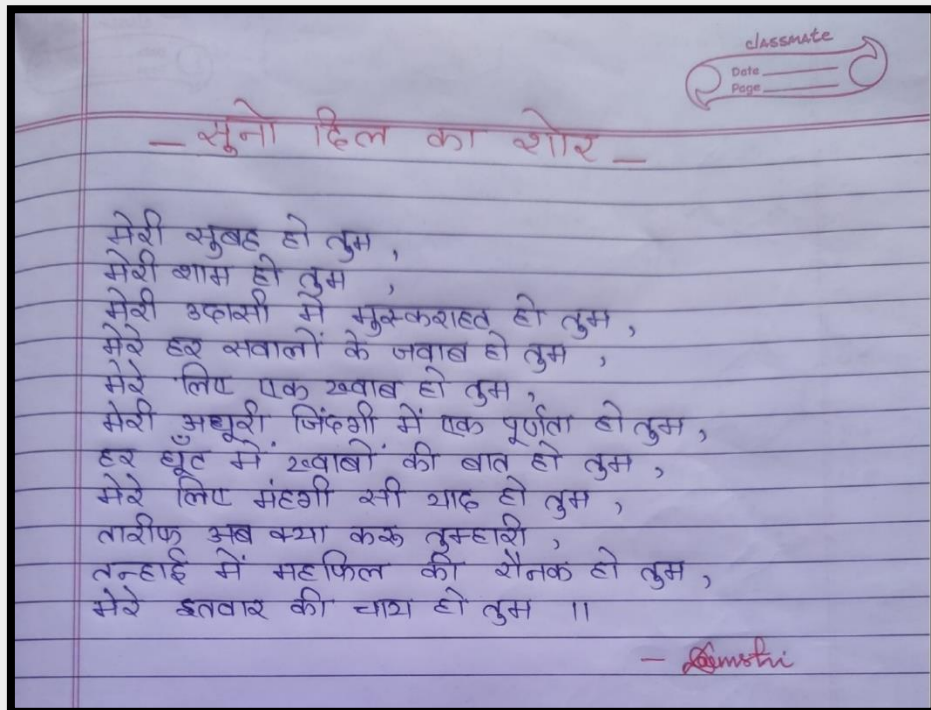 classmate
Date
Page
- सूनो दिल का शोर -
मेरी सुबह हो तुम,
मेरी शाम हो तुम,
मेरी उदासी मे मुस्कराहट हो तुम,
मेरे हर सवालों के जवाब हो तुम,
मेरे लिए एक ख्वाब हो तुम,
मेरी अधूरी जिंदगी में एक पूर्णता हो तुम,
हर घूँट में ख्वाबों की बात हो तुम,
मेरे लिए मंहगी सी याद हो तुम,
तारीफ अब क्या करू तुम्हारी,
तन्हाई में महफिल की रौनक हो तुम,
मेरे इतवार की चाय हो तुम ॥